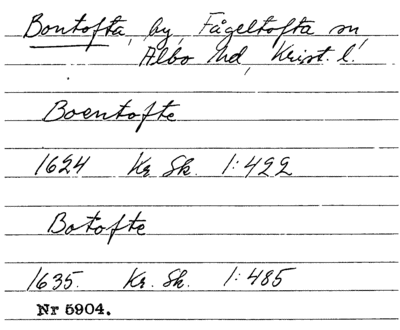 Bontofta, by, Fågeltofta sn,
Albo hd, Krist. l.
Boentofte
1624 Kr. Sk. 1:422
Botofte
1635. Kr. Sk. 1:485
Nr 5904.